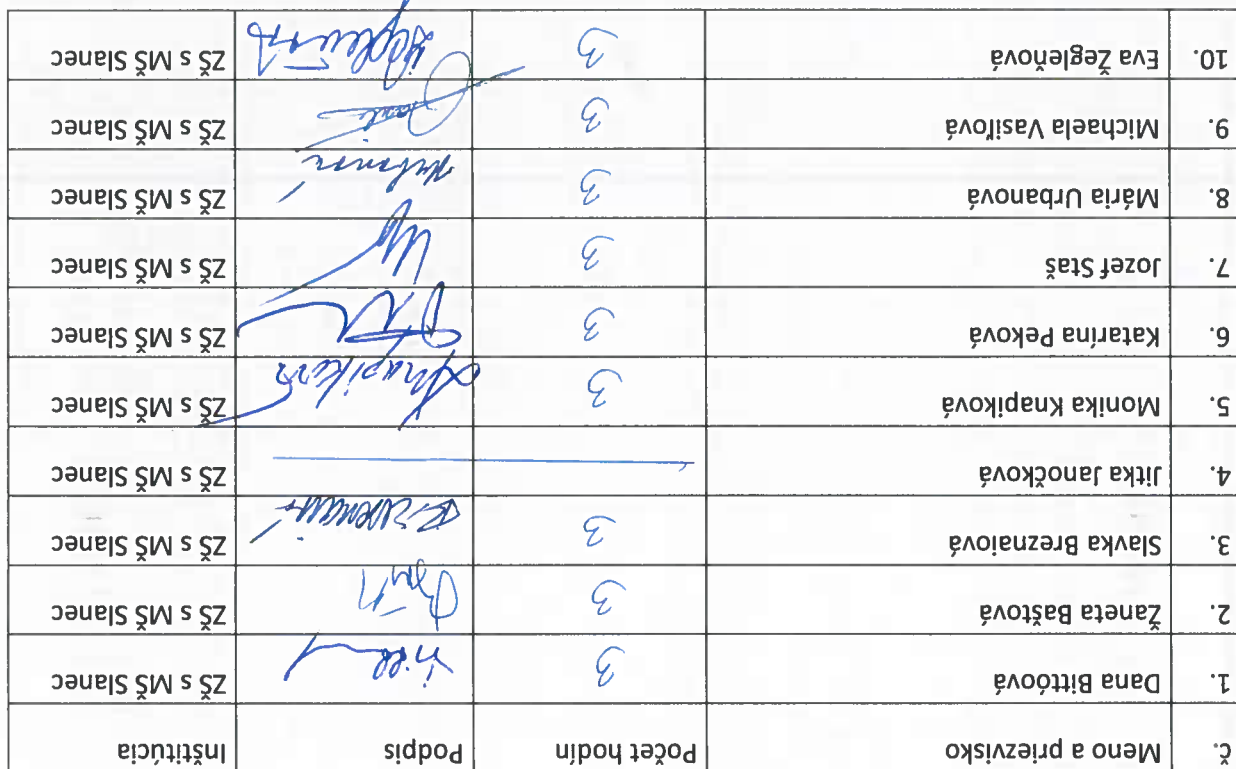 č. Meno a priezvisko Počet hodín Podpis Inštitúcia
1. Dana Bittóová 3 ZŠ s MŠ Slanec
2. Žaneta Baštová 3 ZŠ s MŠ Slanec
3. Slavka Breznaiová 3 ZŠ s MŠ Slanec
4. Jitka Janočková ZŠ s MŠ Slanec
5. Monika Knapiková 3 Knapiková ZŠ s MŠ Slanec
6. Katarína Peková 3 ZŠ s MŠ Slanec
7. Jozef Staš 3 ZŠ s MŠ Slanec
8. Mária Urbanová 3 ZŠ s MŠ Slanec
9. Michaela Vasiľová 3 ZŠ s MŠ Slanec
10. Eva Žegleňová 3 ZŠ s MŠ Slanec